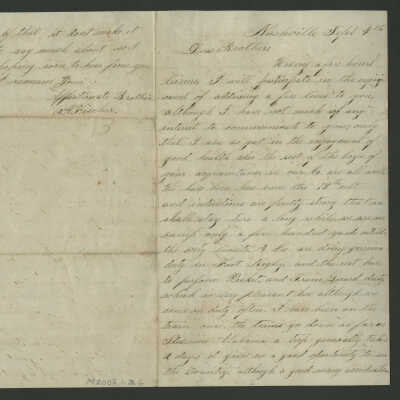 that it dont make it
say much about as I
hoping soon to hear from you
I remains Your
Affectionate Brother
M2008.1.26
Nashville Sept 4th
Dear Brother
Having a few hours
leisure I will participate in the enjoy
ment of addressing a few lines to you
although I have not much of any
interest to communicate to you only
that I am as yet in the enjoyment of
good health also the rest of the boys of
your acquaintance in our Co are all well
the has been here over the
and indications are pretty strong that we
shall stay here a long while we are en
camped only a few hundred yards outside
the city limits 4 Cos are doing
duty in Fort Negley and the rest has
to perform Picket and Train Guard duty
which is very pleasant but although we
come on duty often I have been on the
train once the trains go down as far as
Stevenson Alabama a trip generally takes
4 days it gives us a good opertunity to see
the Country although a good many